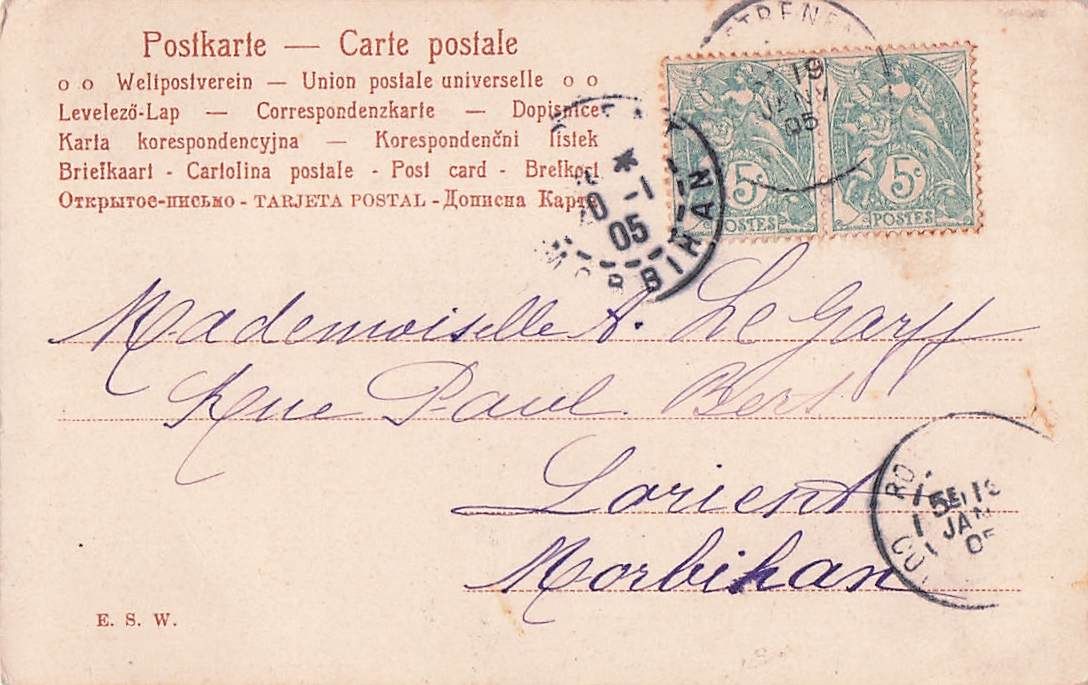 Postkarte — Carte postale
o o Weltpostverein — Union postale universelle o o
Levelező-Lap — Correspondenzkarte — Dopisnice
Karta korespondencyjna — Korespondenční lístek
Briefkaart - Cartolina postale - Post card - Brefkort
Открытое-письмо - TARJETA POSTAL - Дописна Карта
19
JANV
05
5c 5c
POSTES POSTES
20 -1
05
MORBIHAN
Mademoiselle A. Le Garff
Rue Paul Bert
Lorient
Morbihan
JAN
05
E. S. W.